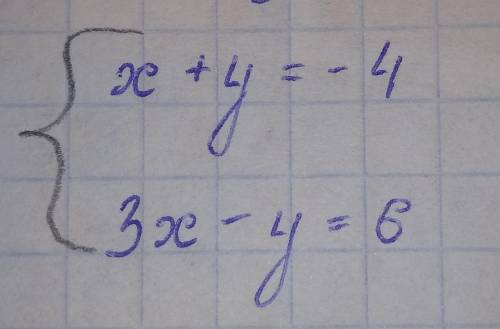 x + y = - 4
3x - y = 6